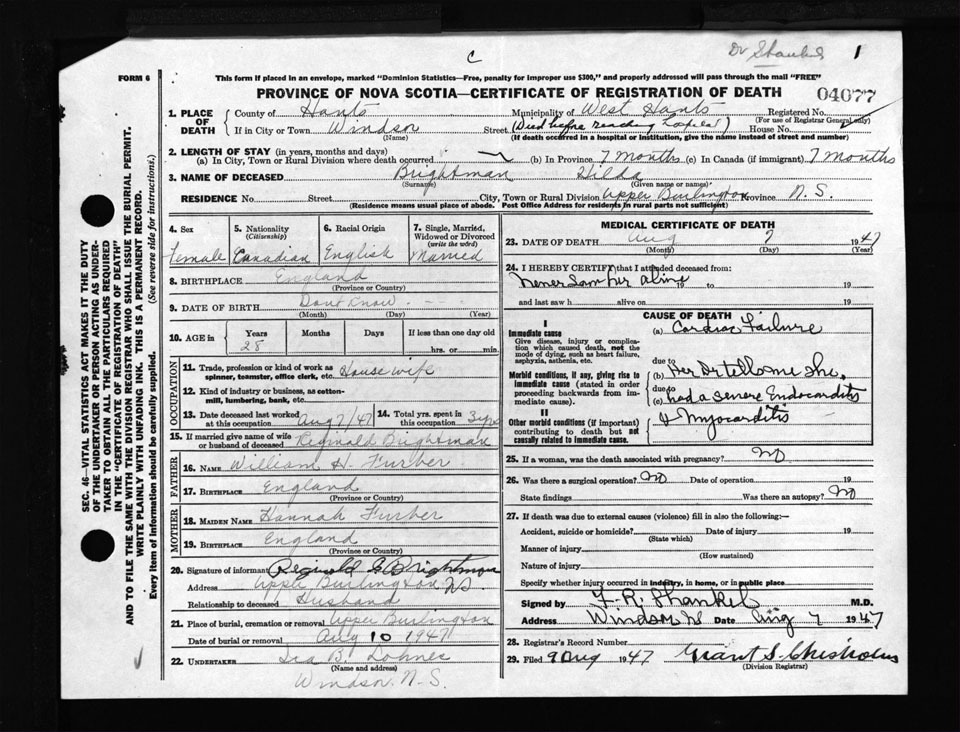 Dr Shankel 1
C
FORM 6
This form if placed in an envelope, marked "Dominion Statistics—Free, penalty for improper use $300," and properly addressed will pass through the mail "FREE"
PROVINCE OF NOVA SCOTIA—CERTIFICATE OF REGISTRATION OF DEATH 04077
1. PLACE OF DEATH
County of Hants Municipality of West Hants Registered No.
(For use of Registrar General only)
If in City or Town Windsor Street (Died before reaching Hospital) House No.
(Name) (If death occurred in a hospital or institution, give the name instead of street and number)
2. LENGTH OF STAY (in years, months and days)
(a) In City, Town or Rural Division where death occurred (b) In Province 7 Months (c) In Canada (if immigrant) 7 Months
3. NAME OF DECEASED Brightman Hilda
(Surname) (Given name or names)
RESIDENCE No. Street City, Town or Rural Division Upper Burlington Province N.S.
(Residence means usual place of abode. Post Office Address for residents in rural parts not sufficient)
4. Sex 5. Nationality (Citizenship) 6. Racial Origin 7. Single, Married, Widowed or Divorced (write the word)
Female Canadian English Married
8. BIRTHPLACE England
(Province or Country)
9. DATE OF BIRTH Dont Know - - -
(Month) (Day) (Year)
10. AGE in Years Months Days If less than one day old
28 hrs. or min.
OCCUPATION
11. Trade, profession or kind of work as spinner, teamster, office clerk, etc. House wife
12. Kind of industry or business, as cotton-mill, lumbering, bank, etc.
13. Date deceased last worked at this occupation Aug 7/47 14. Total yrs. spent in this occupation 3 yrs
15. If married give name of wife or husband of deceased Reginald Brightman
FATHER
16. NAME William H. Furber
17. BIRTHPLACE England
(Province or Country)
MOTHER
18. MAIDEN NAME Hannah Furber
19. BIRTHPLACE England
(Province or Country)
20. Signature of informant Reginald G Brightman
Address Upper Burlington NS
Relationship to deceased Husband
21. Place of burial, cremation or removal Upper Burlington
Date of burial or removal Aug 10 1947
22. UNDERTAKER Ira B. Lohnes
(Name and address)
Windsor. N-S.
MEDICAL CERTIFICATE OF DEATH
23. DATE OF DEATH Aug 7 1947
(Month) (Day) (Year)
24. I HEREBY CERTIFY that I attended deceased from:
never saw her alive to 19
and last saw h alive on 19
CAUSE OF DEATH
I
Immediate cause (a) Cardiac Failure
Give disease, injury or complication which caused death, not the mode of dying, such as heart failure, asphyxia, asthenia, etc.
due to
Morbid conditions, if any, giving rise to immediate cause (stated in order proceeding backwards from immediate cause).
(b) Her Dr tells me she
due to
(c) had a severe Endocarditis
II
& Myocarditis
Other morbid conditions (if important) contributing to death but not causally related to immediate cause.
25. If a woman, was the death associated with pregnancy? No
26. Was there a surgical operation? No Date of operation 19
State findings Was there an autopsy? No
27. If death was due to external causes (violence) fill in also the following:—
Accident, suicide or homicide? Date of injury 19
(State which)
Manner of injury
(How sustained)
Nature of injury
Specify whether injury occurred in industry, in home, or in public place
Signed by F. R. Shankel M.D.
Address Windsor NS Date Aug 7 1947
28. Registrar's Record Number
29. Filed 9 Aug 1947 Grant S. Chisholm
(Division Registrar)
SEC. 46—VITAL STATISTICS ACT MAKES IT THE DUTY
OF THE UNDERTAKER OR PERSON ACTING AS UNDER-
TAKER TO OBTAIN ALL THE PARTICULARS REQUIRED
IN THE "CERTIFICATE OF REGISTRATION OF DEATH"
AND TO FILE THE SAME WITH THE DIVISION REGISTRAR WHO SHALL ISSUE THE BURIAL PERMIT.
WRITE PLAINLY WITH UNFADING INK. THIS IS A PERMANENT RECORD.
Every item of information should be carefully supplied. (See reverse side for instructions).